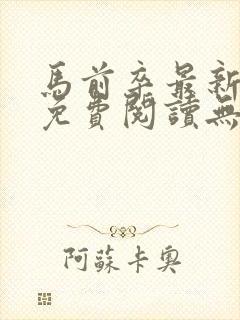 馬前卒最新
免費閱讀無
阿蘇卡奧